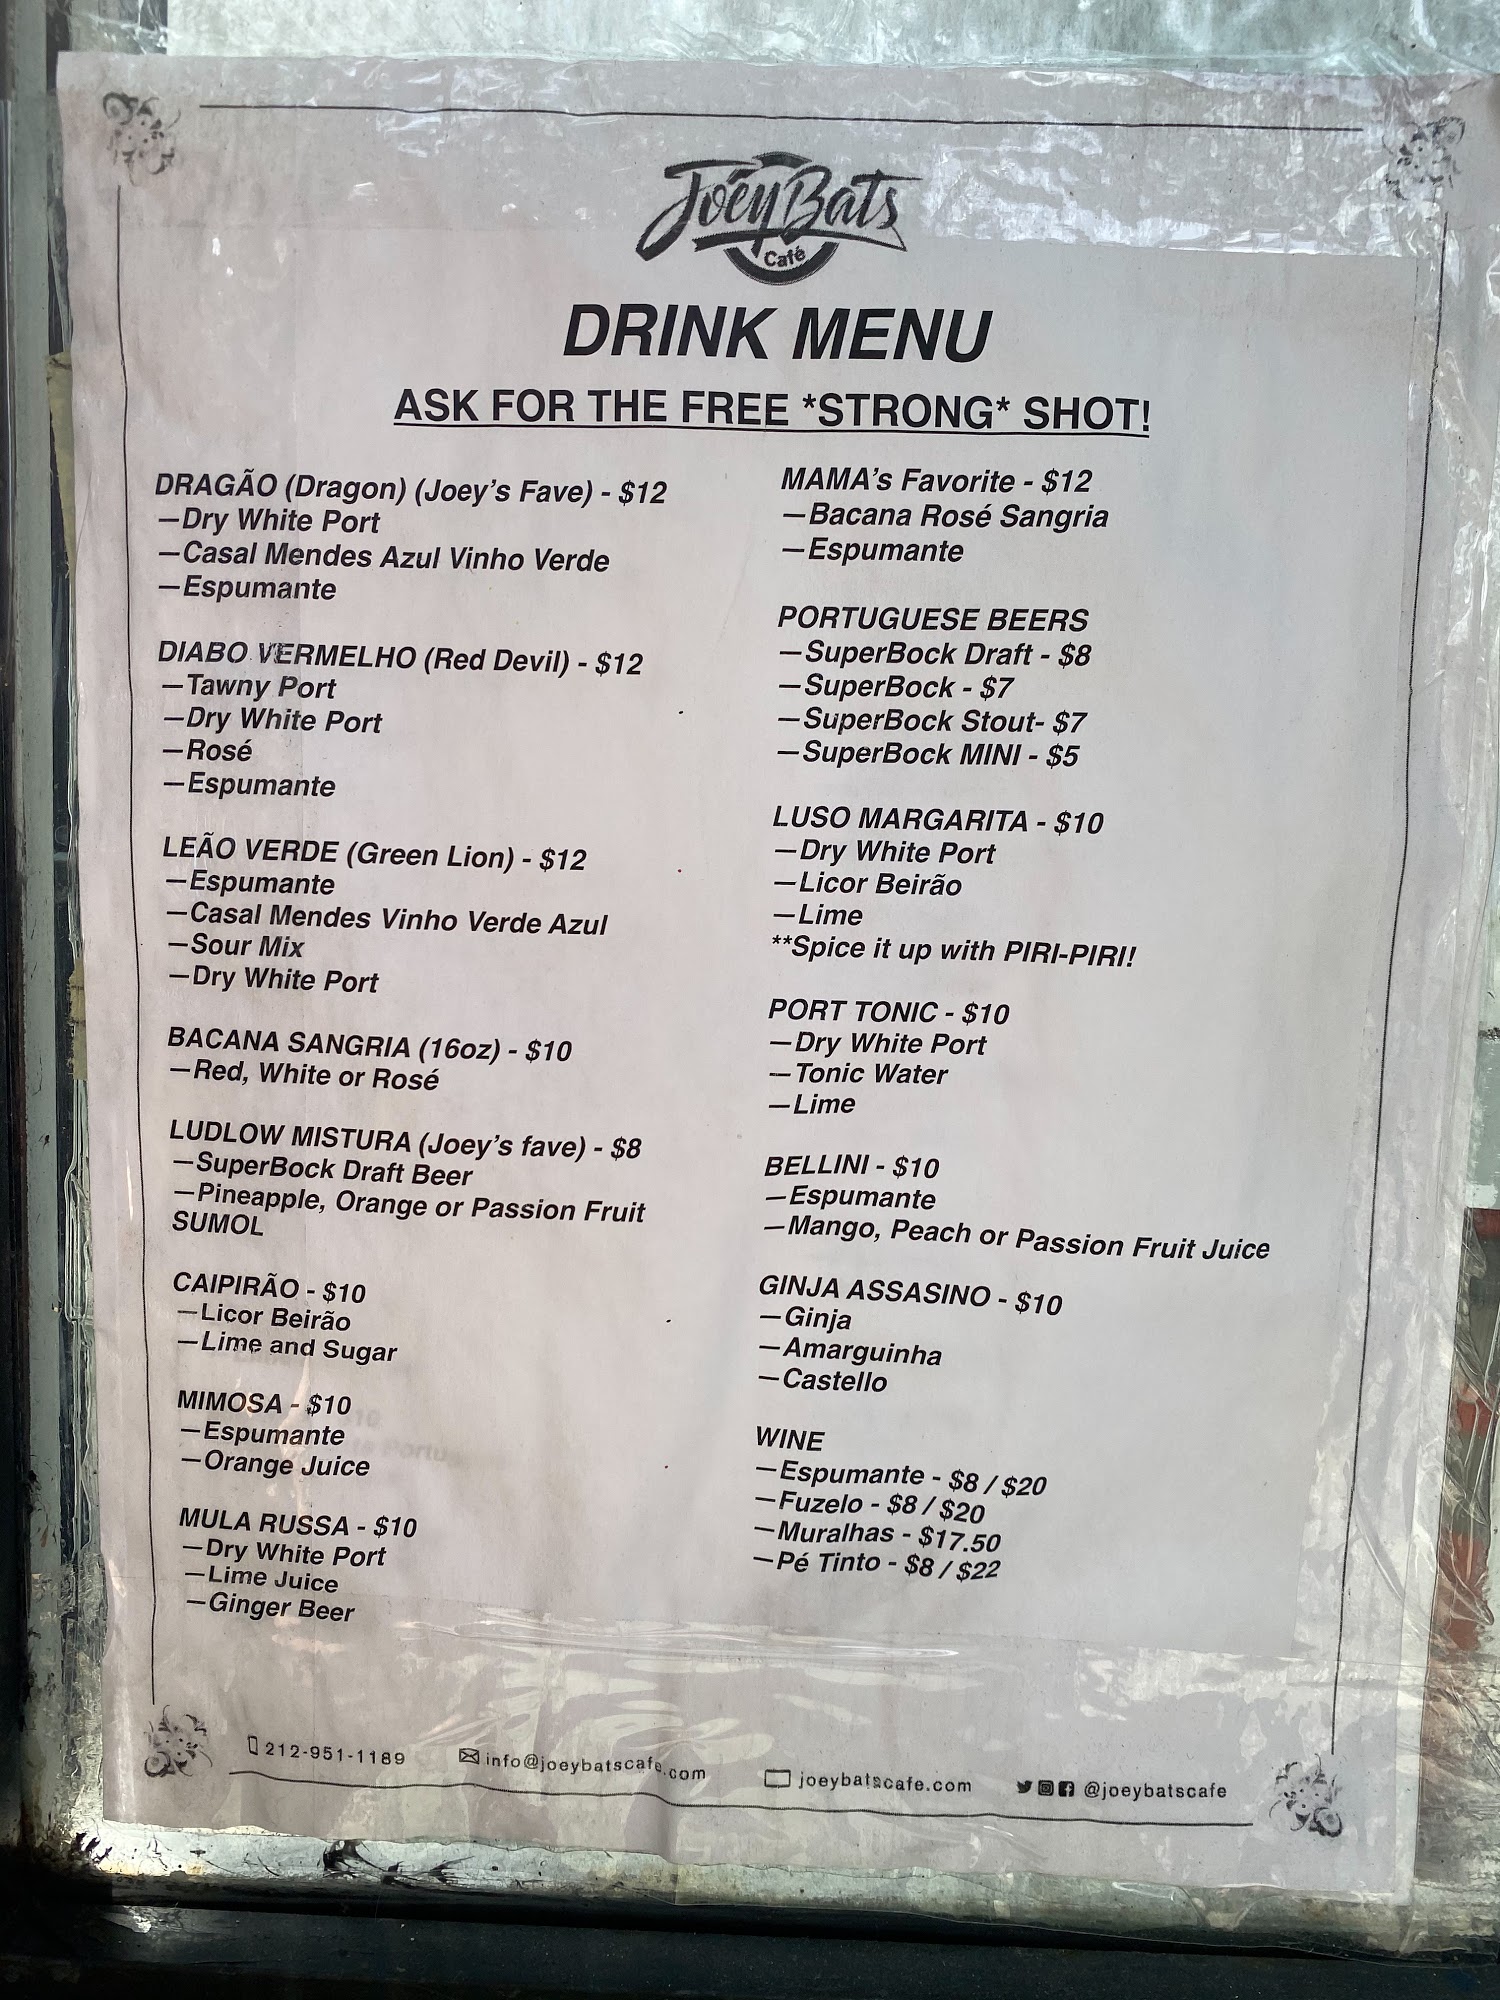 Joey Bats
Café
DRINK MENU
ASK FOR THE FREE *STRONG* SHOT!
DRAGÃO (Dragon) (Joey's Fave) - $12
—Dry White Port
—Casal Mendes Azul Vinho Verde
—Espumante
DIABO VERMELHO (Red Devil) - $12
—Tawny Port
—Dry White Port
—Rosé
—Espumante
LEÃO VERDE (Green Lion) - $12
—Espumante
—Casal Mendes Vinho Verde Azul
—Sour Mix
—Dry White Port
BACANA SANGRIA (16oz) - $10
—Red, White or Rosé
LUDLOW MISTURA (Joey's fave) - $8
—SuperBock Draft Beer
—Pineapple, Orange or Passion Fruit
SUMOL
CAIPIRÃO - $10
—Licor Beirão
—Lime and Sugar
MIMOSA - $10
—Espumante
—Orange Juice
MULA RUSSA - $10
—Dry White Port
—Lime Juice
—Ginger Beer
MAMA's Favorite - $12
—Bacana Rosé Sangria
—Espumante
PORTUGUESE BEERS
—SuperBock Draft - $8
—SuperBock - $7
—SuperBock Stout- $7
—SuperBock MINI - $5
LUSO MARGARITA - $10
—Dry White Port
—Licor Beirão
—Lime
**Spice it up with PIRI-PIRI!
PORT TONIC - $10
—Dry White Port
—Tonic Water
—Lime
BELLINI - $10
—Espumante
—Mango, Peach or Passion Fruit Juice
GINJA ASSASINO - $10
—Ginja
—Amarguinha
—Castello
WINE
—Espumante - $8 / $20
—Fuzelo - $8 / $20
—Muralhas - $17.50
—Pé Tinto - $8 / $22
212-951-1189 info@joeybatscafe.com joeybatscafe.com @joeybatscafe